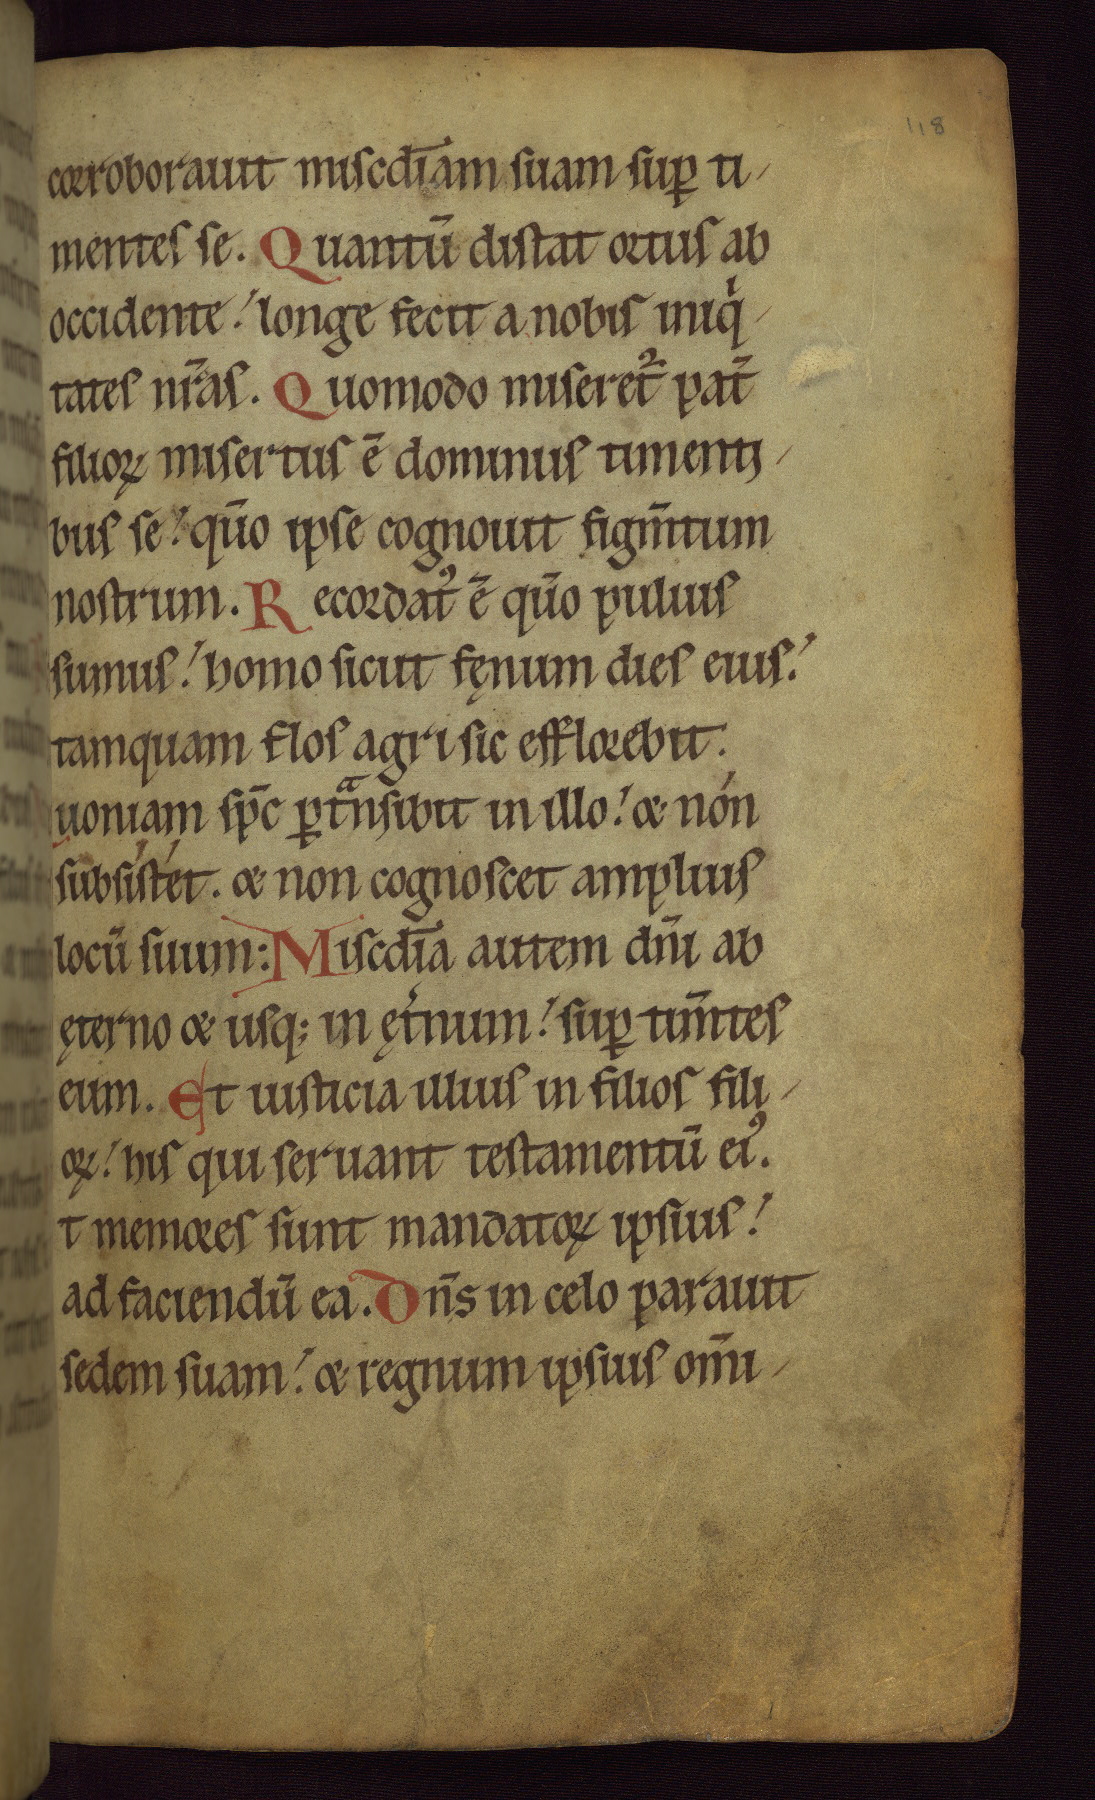 118
corroborauit misc̄diam suam suꝑ ti-
mentes se. Quantū distat ortus ab
occidente! longe fecit a nobis iniqͥ-
tates nr̄as. Quomodo miseret᷑ pat̄
filioꝝ misertus ē dominus timenti-
bus se! qūo ipse cognouit figm̄tum
nostrum. Recordatꝰ ē qūo puluis
sumus! homo sicut fęnum dies eius!
tamquam flos agri sic efflorebit.
uoniam sp̄c ꝑtᷓnsibit in illo! & non
subsistet. & non cognoscet amplius
locū suum: Misc̄dia autem dn̄i ab
ęterno & usq; in ęt̉num! suꝑ tim̄tes
eum. Et iusticia illius in filios fili-
oꝝ! his qui seruant testamentū eiꝰ.
t memores sunt mandatoꝝ ipsius!
ad faciendū ea. Dn̄s in celo parauit
sedem suam! & regnum ipsius om̄i-